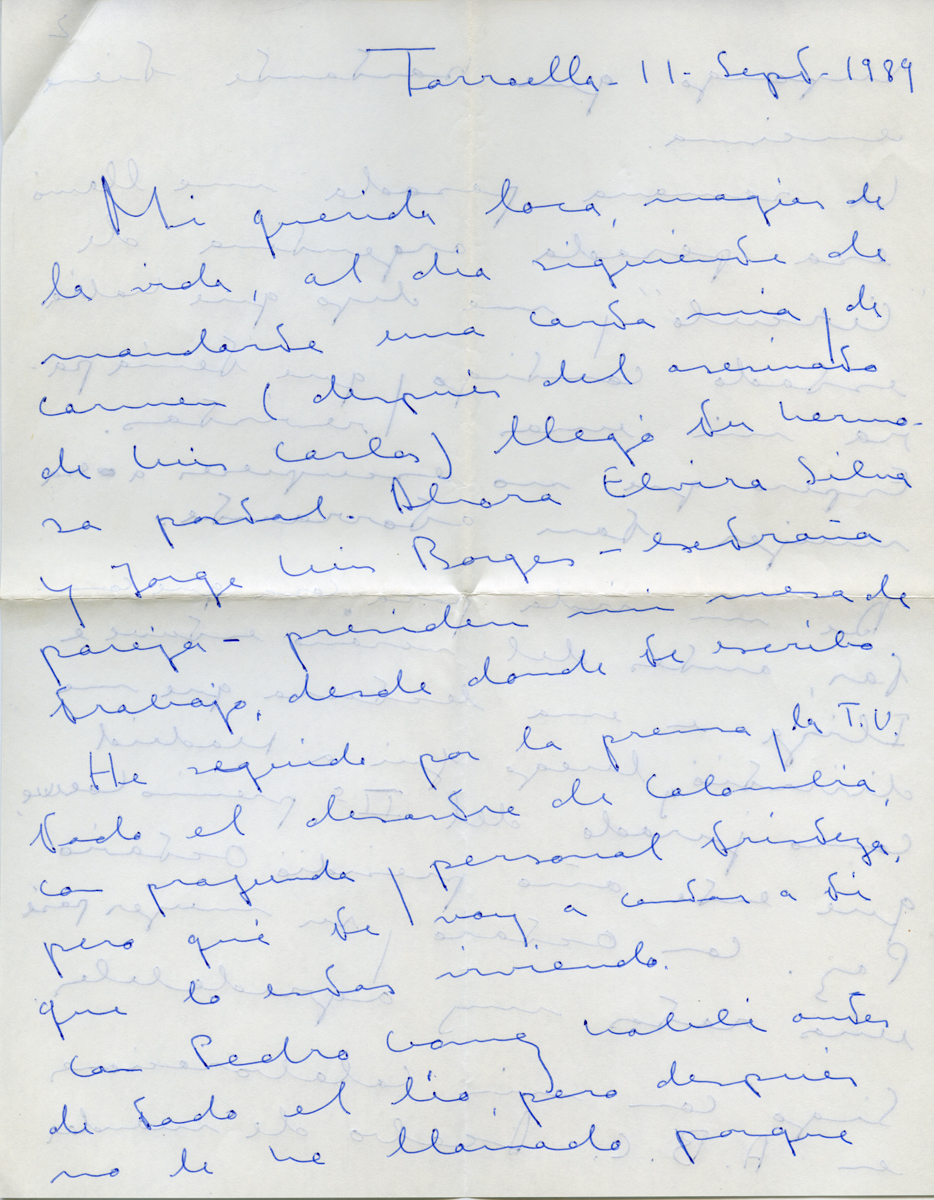 Torroella - 11 - Sept - 1989
Mi querida loca, magias de
la vida, al dia siguiente de
mandarte una carta mia y de
Carmen (después del asesinato
de Luis Carlos) llegó tu hermo-
sa postal. Ahora Elvira Silva
y Jorge Luis Borges - extraña
pareja - presiden mi mesa de
trabajo, desde donde te escribo.
He seguido por la prensa y la T.V.
todo el desastre de Colombia,
con profunda y personal tristeza,
pero qué te voy a contar a ti
que lo estas viviendo.
Con Pedro Gomez hablé antes
de todo el lío, pero después
no le he llamado porque